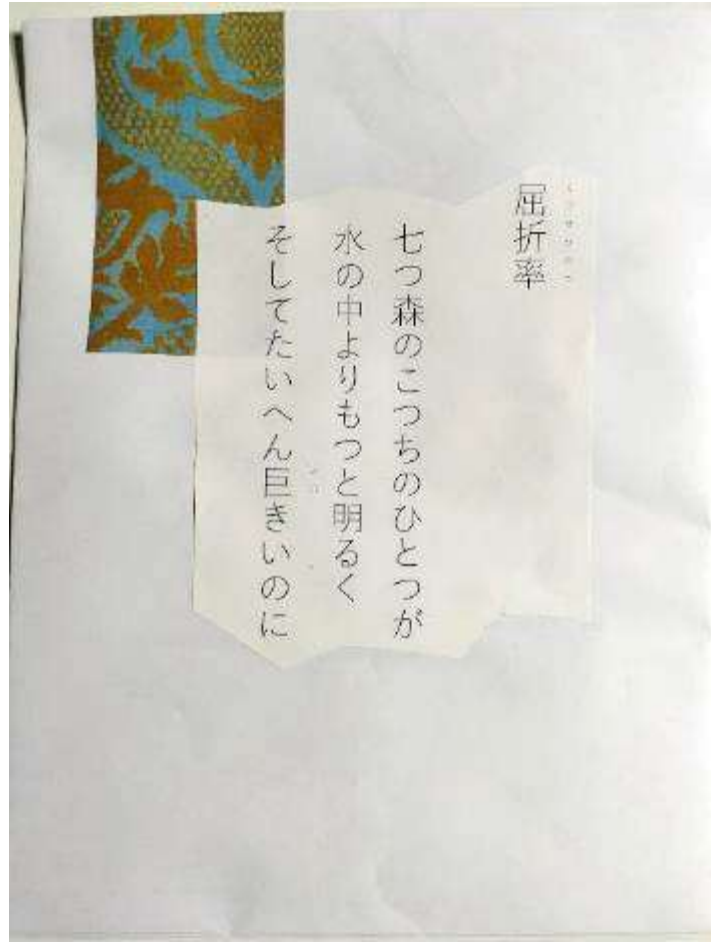 屈折率
七つ森のこつちのひとつが
水の中よりもつと明るく
そしてたいへん巨きいのに